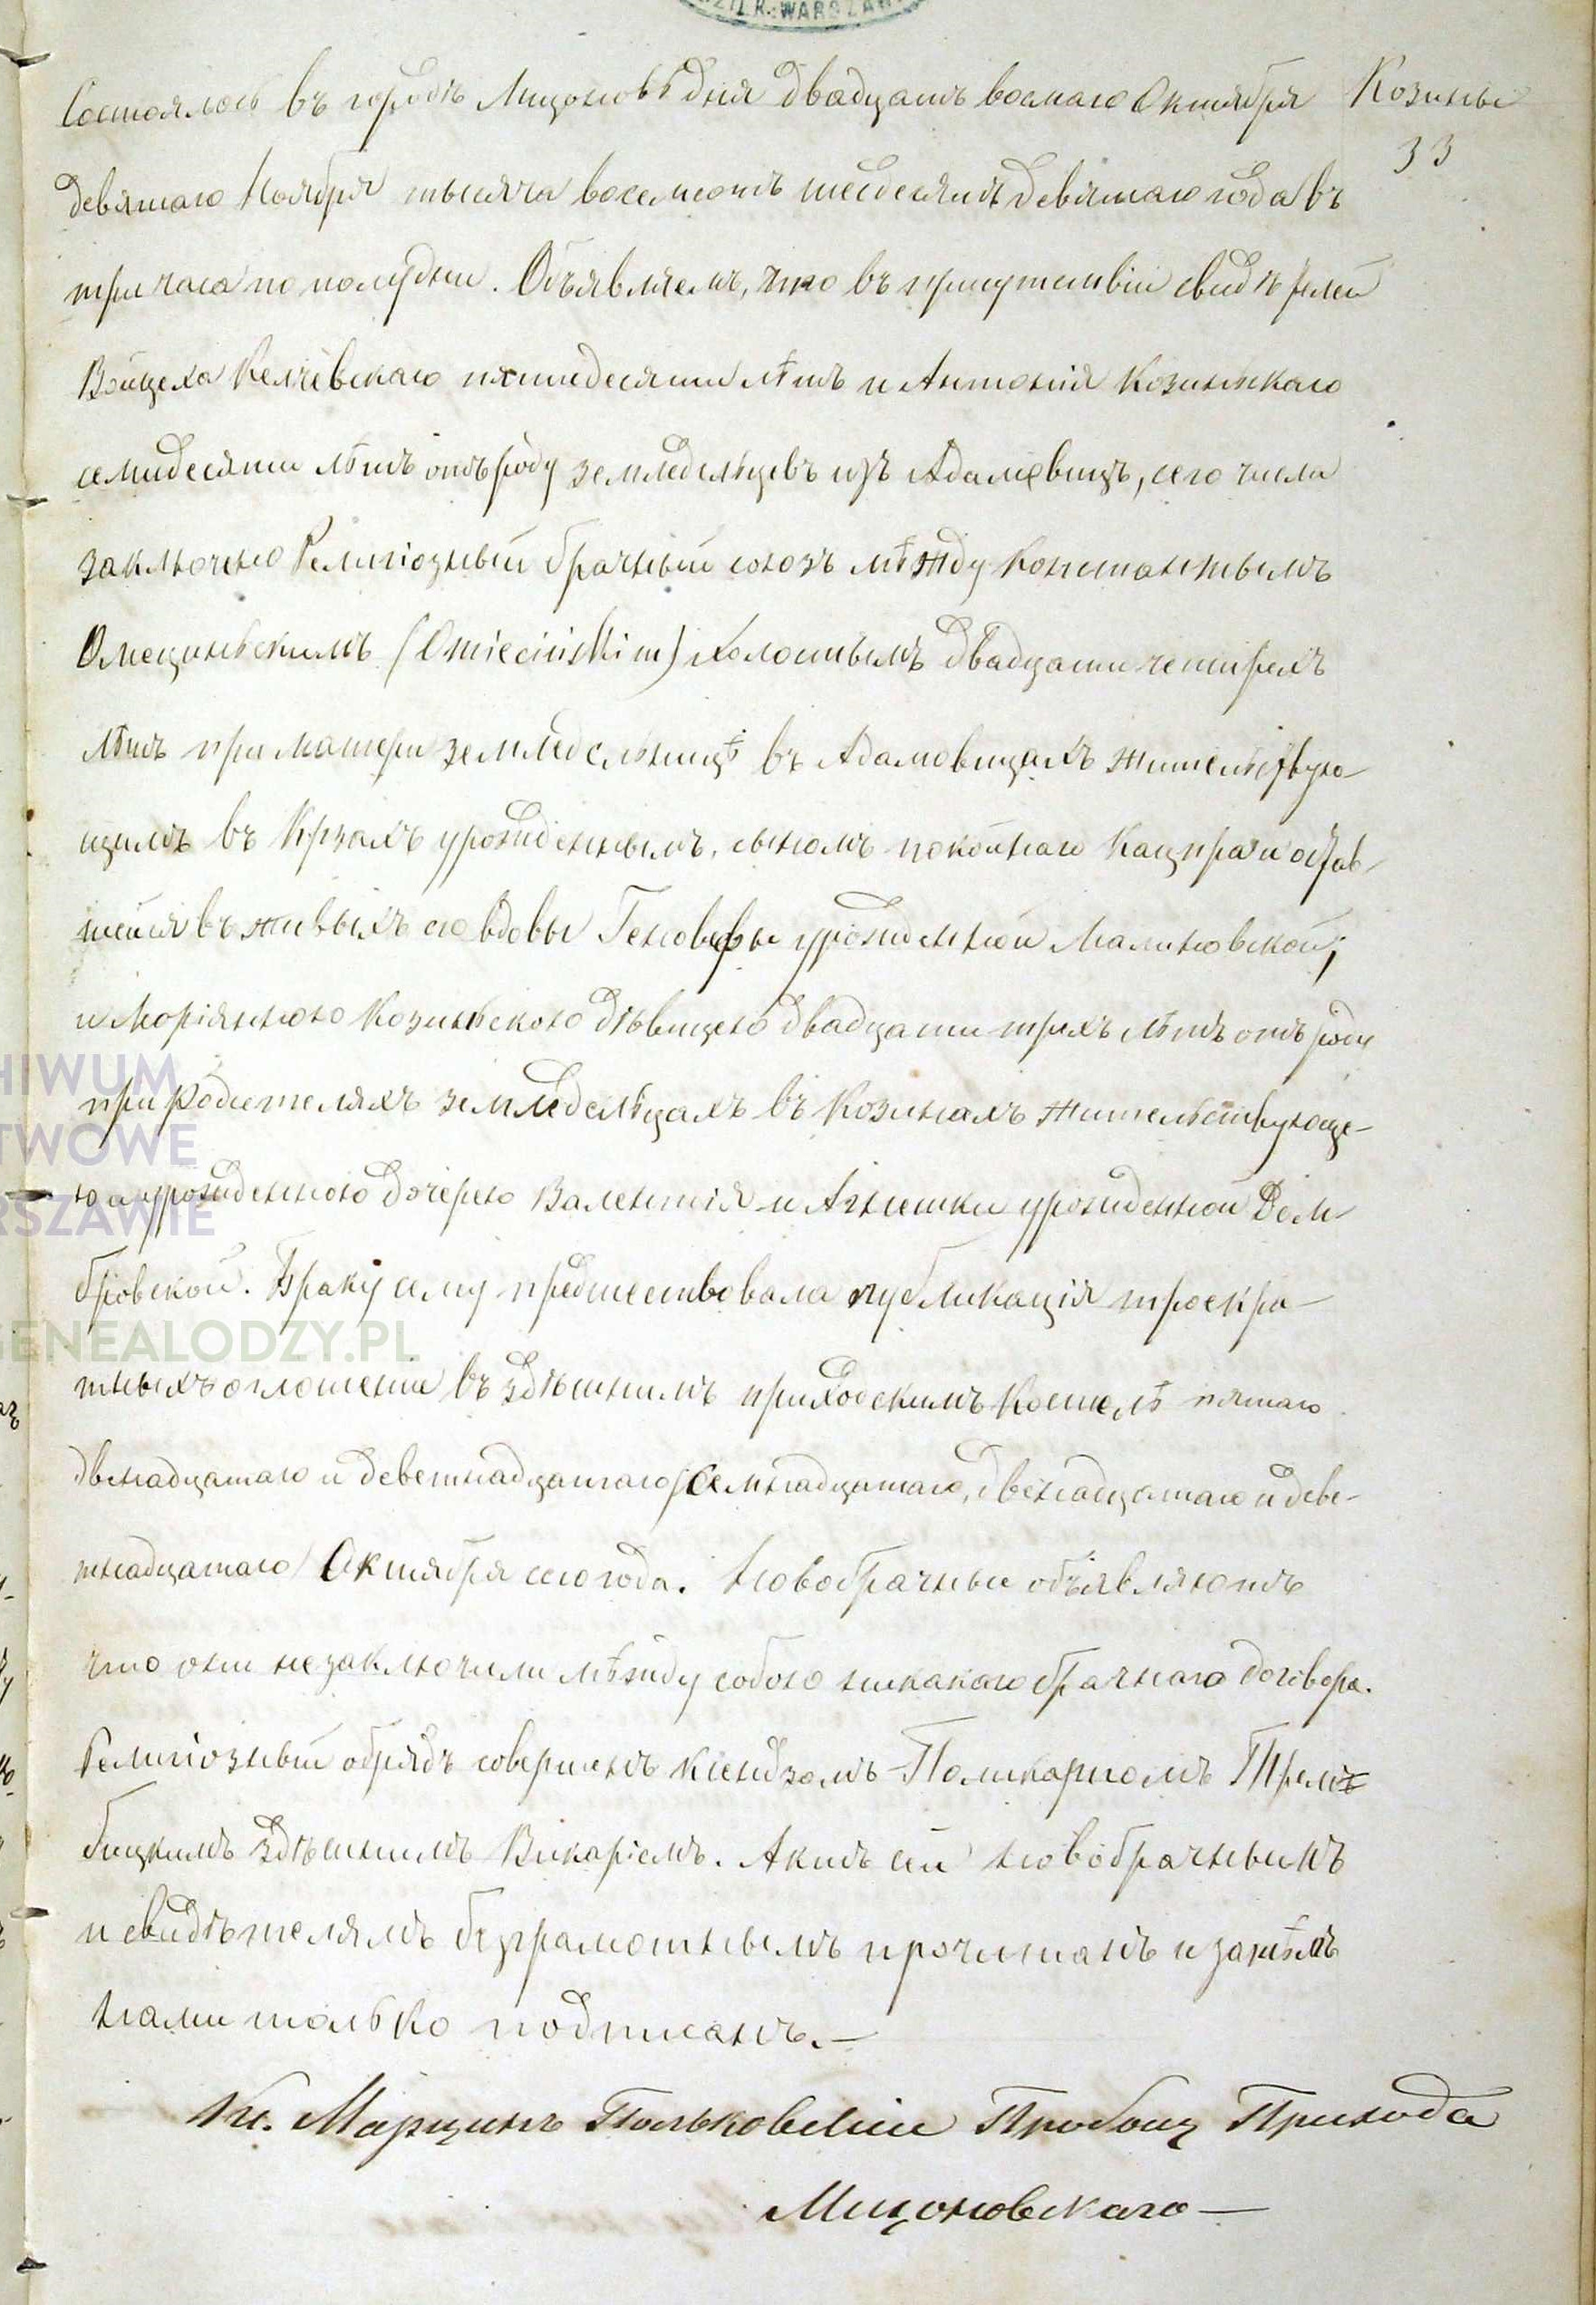 DZIŁ R. WARSZAW
Состоялось въ городѣ Мщоновѣ дня двадцать восмаго Октября Козины
девятаго Ноября тысяча восемсотъ шесдесятъ девятаго года въ 33
три часа по полудни. Объявляемъ, что въ присутствіи свидѣтелей
Войцеха Келчевскаго пятидесяти лѣтъ и Антонія Козинскаго
семидесяти лѣтъ отъ роду земледельцевъ изъ Адамовицъ, сего числа
заключено Религіозный брачный союзъ мѣжду Константымъ
Омецинскимъ (Omiecińskim) холостымъ двадцати четирехъ
лѣтъ при матери земледельницѣ въ Адамовицахъ жительствую-
щимъ въ Крзахъ урожденнымъ, сыномъ покойнаго Кацпра и остав-
шейся въ живыхъ его вдовы Геновефы урожденной Малиновской;
и Маріянною Козинской дѣвицею двадцати трехъ лѣтъ отъ роду
при родителяхъ земледельцахъ въ Козинахъ жительствующе-
ю и урожденною дочерею Валентія и Агнешки урожденной Дом-
бровской. Браку сему предшествовала публикація троекра-
тныхъ оглошеніи въ здѣшнимъ приходскимъ Костелѣ пятаго
двенадцатаго и деветнадцатаго /семнадцатаго, двенадцатаго и деве-
тнадцатаго/ Октября сего года. Новобрачные объявляютъ
что они незаключили мѣжду собою никакаго брачнаго договора.
Религіозный обрядъ совершенъ ксендзомъ Поликарпомъ Трем-
бицкимъ здѣшнимъ Викаріемъ. Актъ сей новобрачнымъ
и свидѣтелямъ безграмотнымъ прочитанъ и затѣмъ
нами только подписанъ.—
Кс. Марцинъ Польковскіи Пробощ Прихода
Мщоновскаго —
HIWUM
TWOWE
RSZAWIE
GENEALODZY.PL